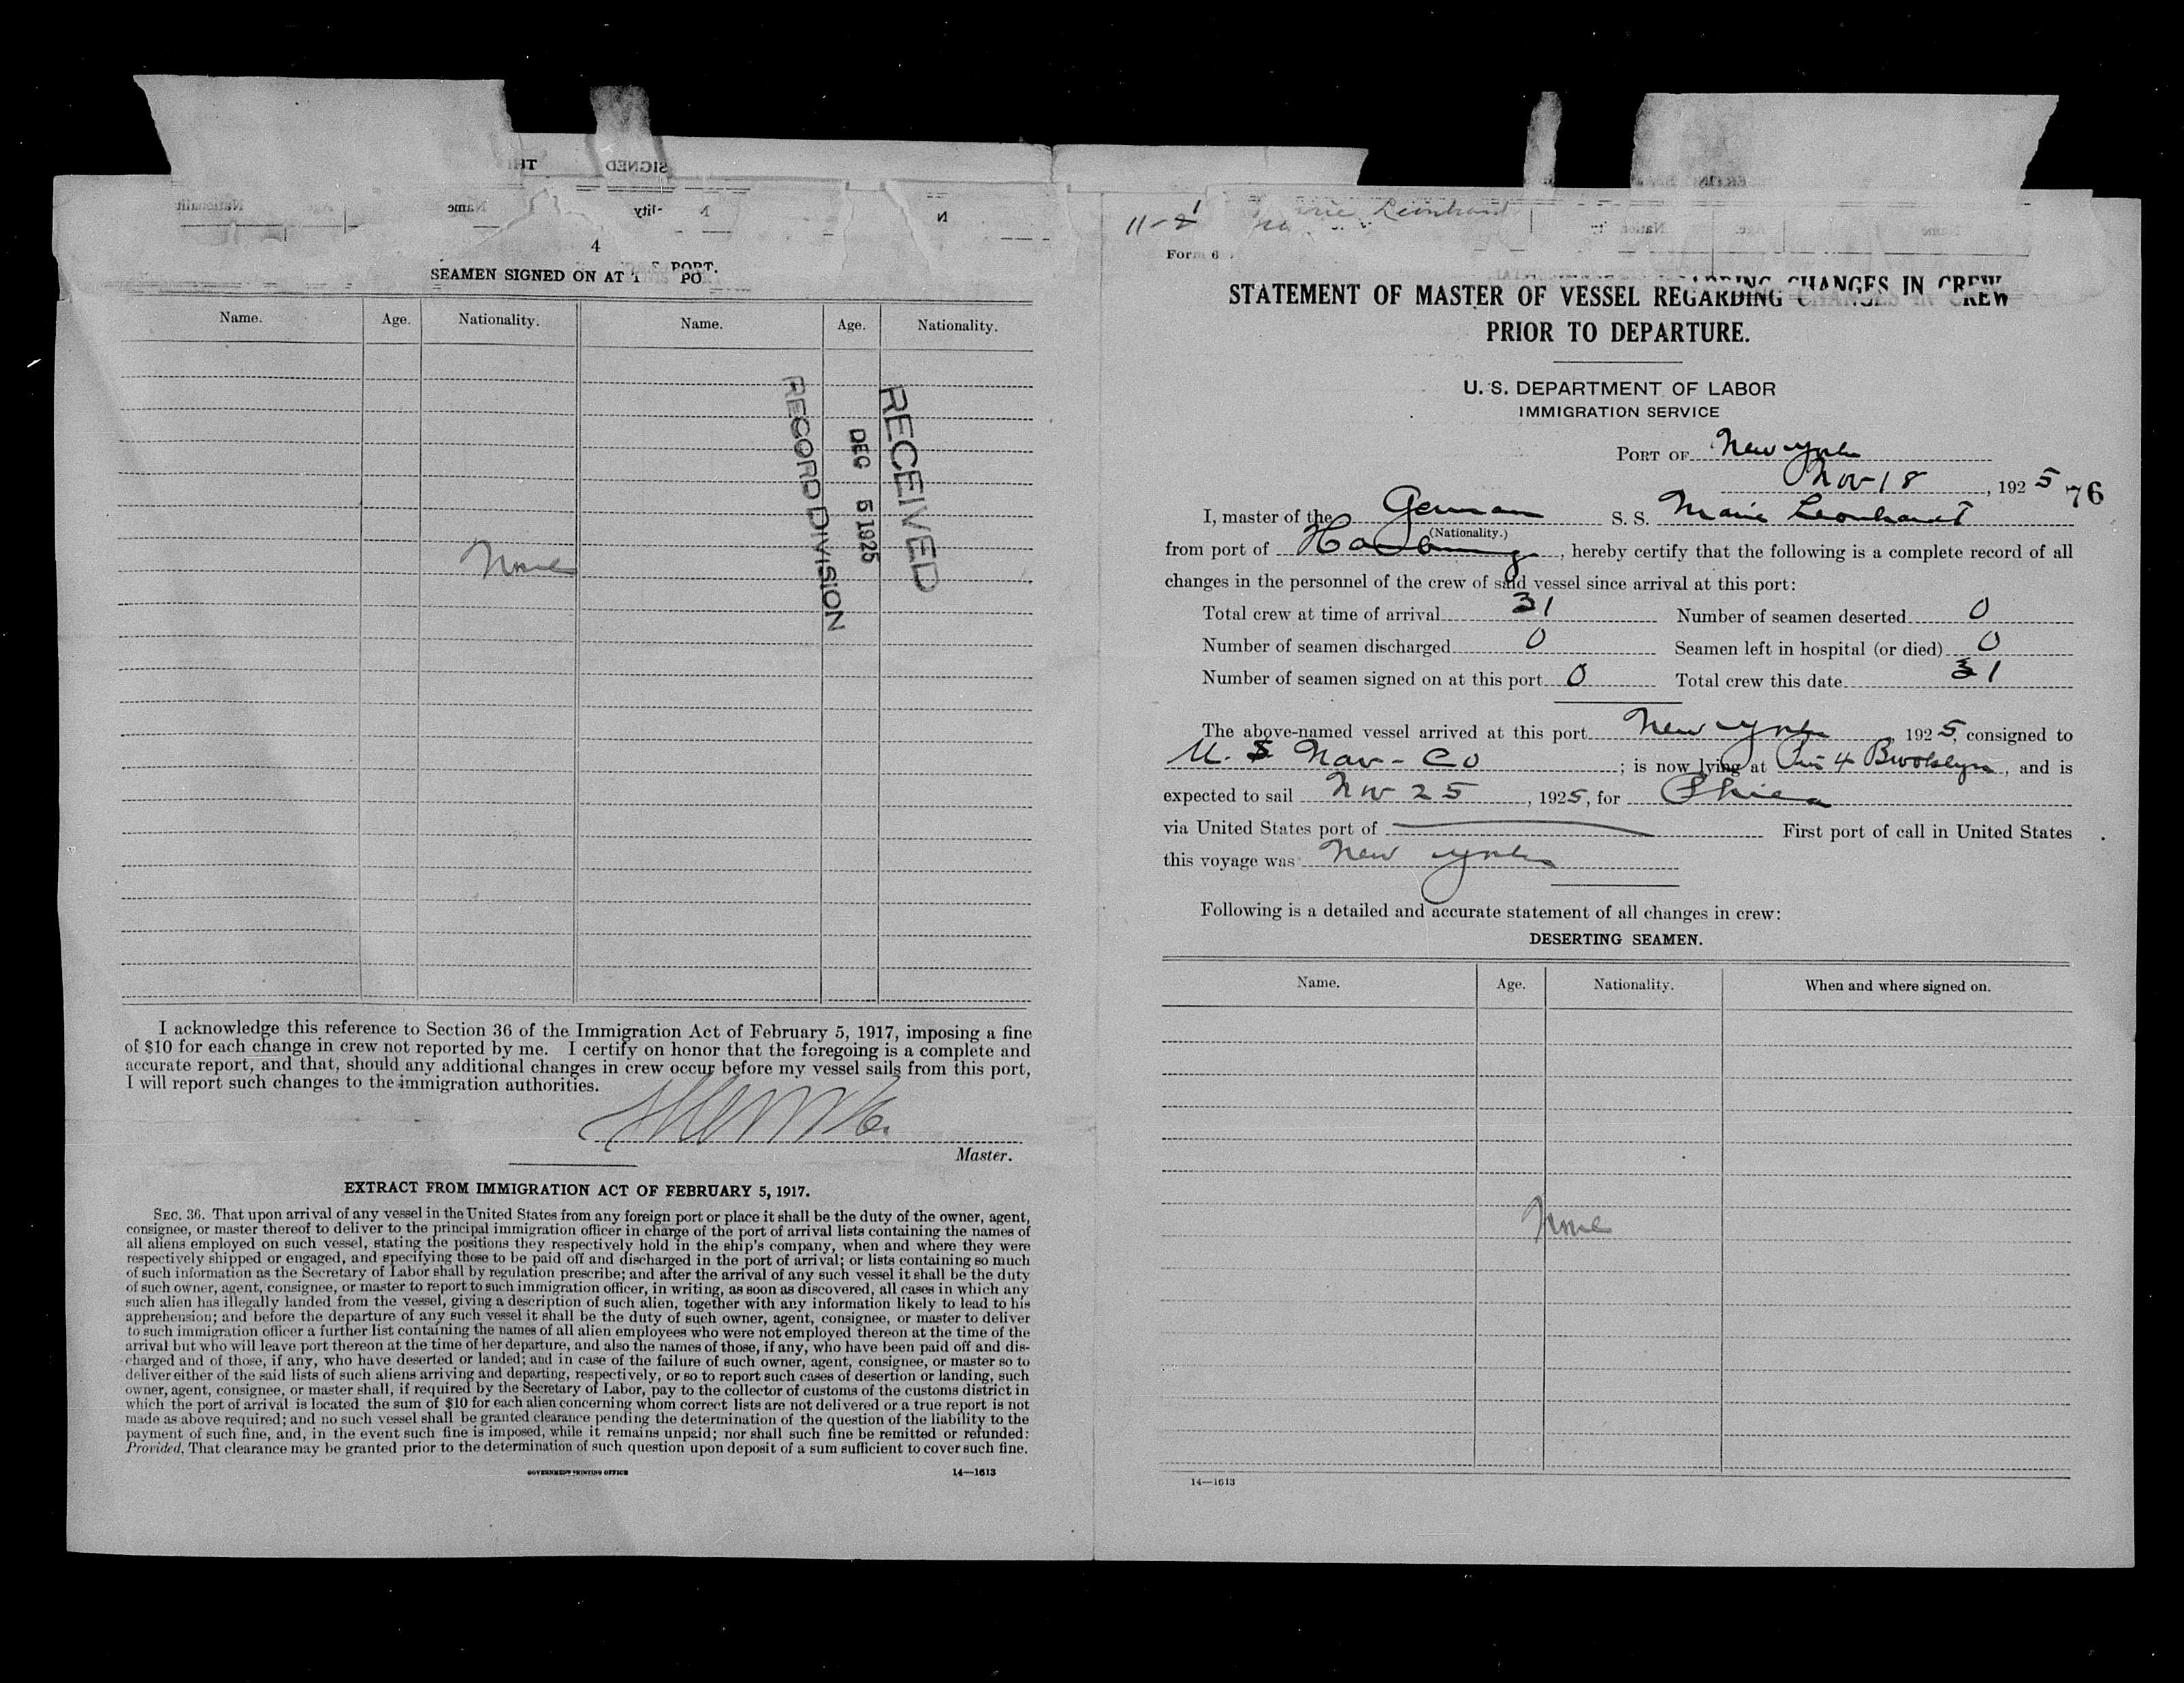 4
SEAMEN SIGNED ON AT
PORT.
Name. Age. Nationality. Name. Age. Nationality.
RECEIVED
DEC 5 1925
RECORD DIVISION
None
I acknowledge this reference to Section 36 of the Immigration Act of February 5, 1917, imposing a fine
of $10 for each change in crew not reported by me. I certify on honor that the foregoing is a complete and
accurate report, and that, should any additional changes in crew occur before my vessel sails from this port,
I will report such changes to the immigration authorities.
Master.
EXTRACT FROM IMMIGRATION ACT OF FEBRUARY 5, 1917.
SEC. 36. That upon arrival of any vessel in the United States from any foreign port or place it shall be the duty of the owner, agent,
consignee, or master thereof to deliver to the principal immigration officer in charge of the port of arrival lists containing the names of
all aliens employed on such vessel, stating the positions they respectively hold in the ship's company, when and where they were
respectively shipped or engaged, and specifying those to be paid off and discharged in the port of arrival; or lists containing so much
of such information as the Secretary of Labor shall by regulation prescribe; and after the arrival of any such vessel it shall be the duty
of such owner, agent, consignee, or master to report to such immigration officer, in writing, as soon as discovered, all cases in which any
such alien has illegally landed from the vessel, giving a description of such alien, together with any information likely to lead to his
apprehension; and before the departure of any such vessel it shall be the duty of such owner, agent, consignee, or master to deliver
to such immigration officer a further list containing the names of all alien employees who were not employed thereon at the time of the
arrival but who will leave port thereon at the time of her departure, and also the names of those, if any, who have been paid off and dis-
charged and of those, if any, who have deserted or landed; and in case of the failure of such owner, agent, consignee, or master so to
deliver either of the said lists of such aliens arriving and departing, respectively, or so to report such cases of desertion or landing, such
owner, agent, consignee, or master shall, if required by the Secretary of Labor, pay to the collector of customs of the customs district in
which the port of arrival is located the sum of $10 for each alien concerning whom correct lists are not delivered or a true report is not
made as above required; and no such vessel shall be granted clearance pending the determination of the question of the liability to the
payment of such fine, and, in the event such fine is imposed, while it remains unpaid; nor shall such fine be remitted or refunded:
Provided, That clearance may be granted prior to the determination of such question upon deposit of a sum sufficient to cover such fine.
GOVERNMENT PRINTING OFFICE 14—1613
Leonhardt
Form 6
STATEMENT OF MASTER OF VESSEL REGARDING CHANGES IN CREW
PRIOR TO DEPARTURE.
U. S. DEPARTMENT OF LABOR
IMMIGRATION SERVICE
PORT OF New York
Nov 18, 1925
76
I, master of the German S. S. Marie Leonhardt
(Nationality.)
from port of Hamburg, hereby certify that the following is a complete record of all
changes in the personnel of the crew of said vessel since arrival at this port:
Total crew at time of arrival 31 Number of seamen deserted 0
Number of seamen discharged 0 Seamen left in hospital (or died) 0
Number of seamen signed on at this port 0 Total crew this date 31
The above-named vessel arrived at this port New York 1925, consigned to
U. S Nav - Co; is now lying at Pier 4 Brooklyn, and is
expected to sail Nov 25, 1925, for Phila
via United States port of First port of call in United States
this voyage was New York
Following is a detailed and accurate statement of all changes in crew:
DESERTING SEAMEN.
Name. Age. Nationality. When and where signed on.
None
14—1613